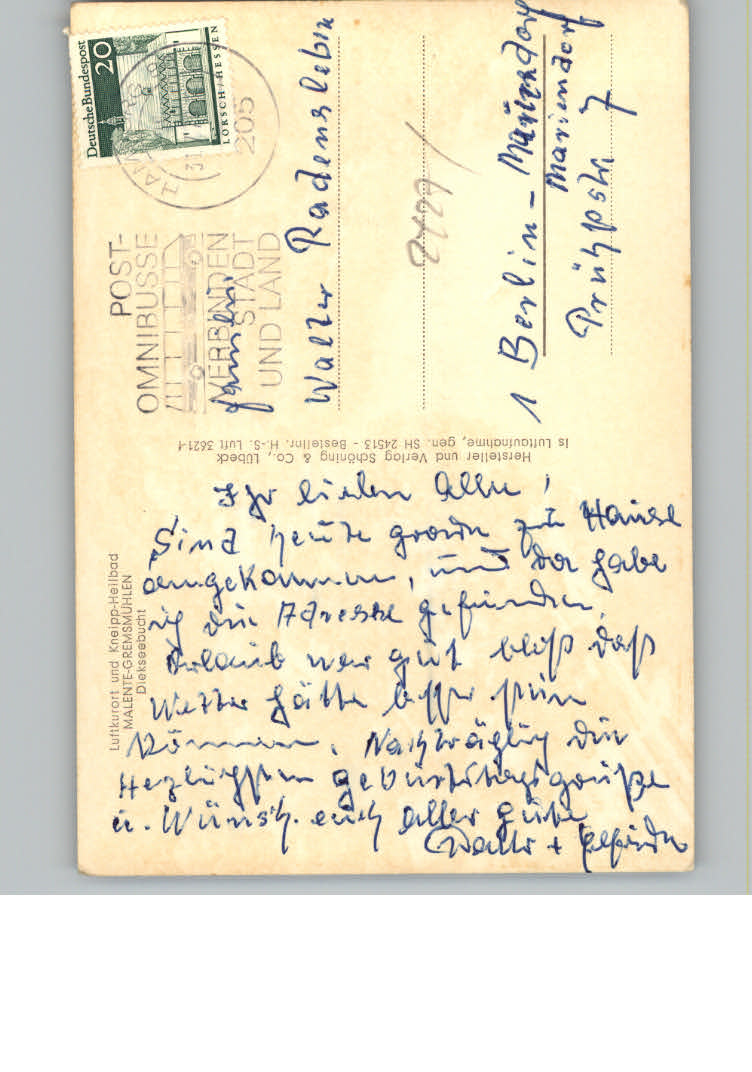 Deutsche Bundespost
20
LORSCH/HESSEN
205
POST-
OMNIBUSSE
VERBINDEN
STADT
UND LAND
Familie
Walter Radensleben
1 Berlin - Mariendorf
Mariendorf
Prühßstr. 7
Hersteller und Verlag Schöning & Co., Lübeck
is Luftaufnahme, gen. SH 24513 - Bestellnr. H.-S. Luft 3621-f
Luftkurort und Kneipp-Heilbad
MALENTE-GREMSMÜHLEN
Diekseebucht
Ihr lieben Alle!
Sind heute grade zu Hause
angekommen, und da habe
ich die Adresse gefunden.
Urlaub war gut bloß daß
Wetter hätte besser sein
können. Nachträglich die
Herzlichsten Geburtstagsgrüße
u. Wünsch. euch alles gute
Walter +